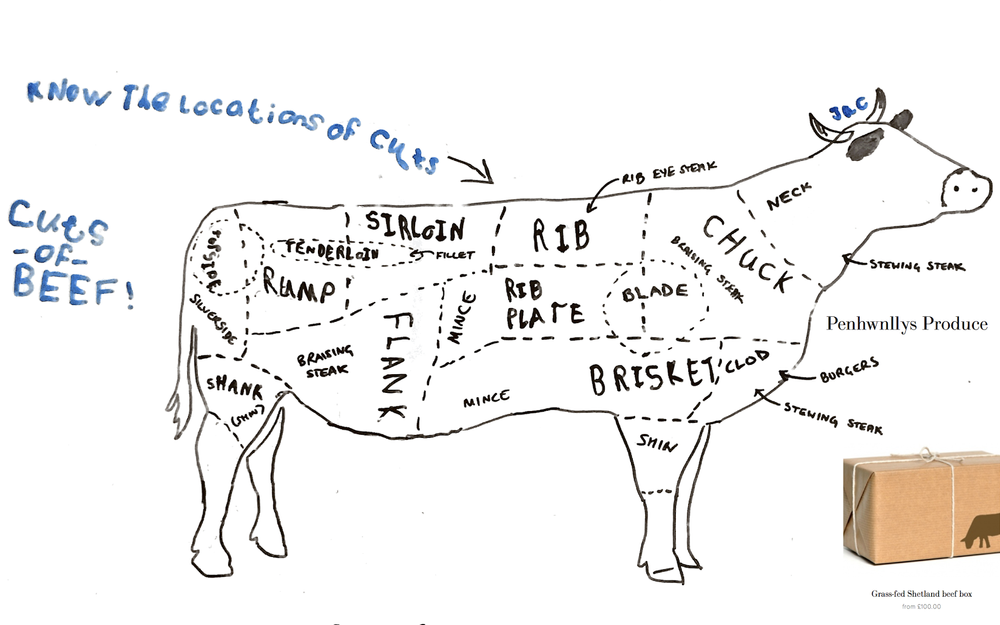 KNOW THE LOCATIONS OF CUTS
CUTS
-OF-
BEEF!
JRC
RIB EYE STEAK
NECK
SIRLOIN
RIB
CHUCK
BRAISING STEAK
TOPSIDE
TENDERLOIN
FILLET
STEWING STEAK
RUMP
MINCE
RIB
PLATE
BLADE
SILVERSIDE
FLANK
Penhwnllys Produce
BRAISING
STEAK
BRISKET
CLOD
BURGERS
SHANK
(SHIN)
MINCE
STEWING STEAK
SHIN
Grass-fed Shetland beef box
from £100.00